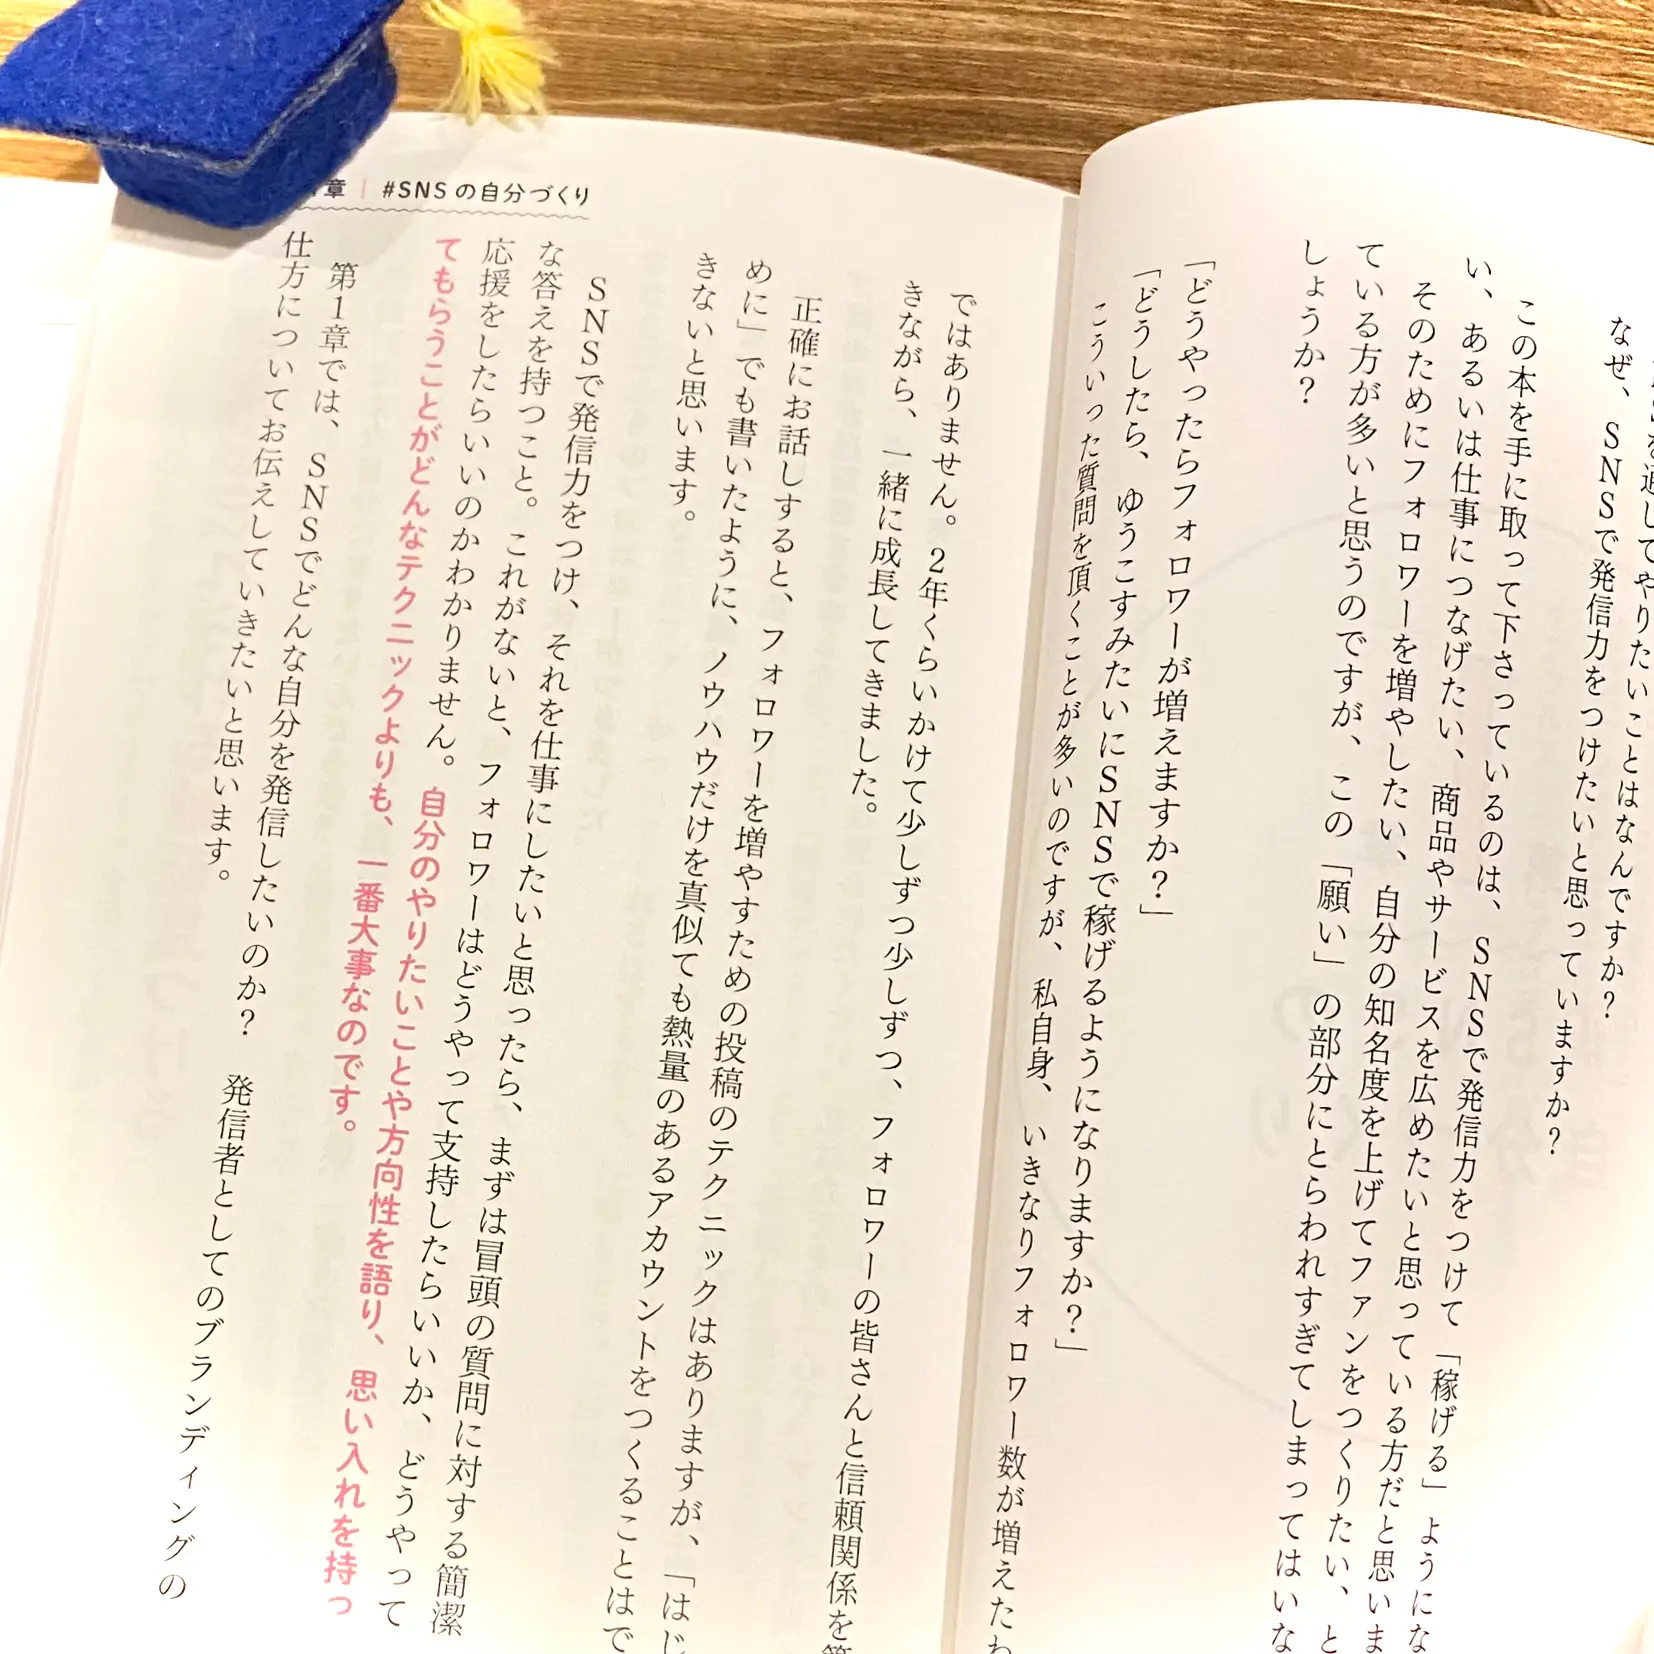 を通してやりたいことはなんですか？
なぜ、SNSで発信力をつけたいと思っていますか？
この本を手に取って下さっているのは、SNSで発信力をつけて「稼げる」ようにな
い、あるいは仕事につなげたい、商品やサービスを広めたいと思っている方だと思いま
そのためにフォロワーを増やしたい、自分の知名度を上げてファンをつくりたい、と
ている方が多いと思うのですが、この「願い」の部分にとらわれすぎてしまってはいな
しょうか？
「どうやったらフォロワーが増えますか？」
「どうしたら、ゆうこすみたいにSNSで稼げるようになりますか？」
こういった質問を頂くことが多いのですが、私自身、いきなりフォロワー数が増えたわ
ではありません。2年くらいかけて少しずつ少しずつ、フォロワーの皆さんと信頼関係を
きながら、一緒に成長してきました。
正確にお話しすると、フォロワーを増やすための投稿のテクニックはありますが、「はじ
めに」でも書いたように、ノウハウだけを真似ても熱量のあるアカウントをつくることはで
きないと思います。
SNSで発信力をつけ、それを仕事にしたいと思ったら、まずは冒頭の質問に対する簡潔
な答えを持つこと。これがないと、フォロワーはどうやって支持したらいいか、どうやって
応援をしたらいいのかわかりません。自分のやりたいことや方向性を語り、思い入れを持っ
てもらうことがどんなテクニックよりも、一番大事なのです。
第1章では、SNSでどんな自分を発信したいのか？　発信者としてのブランディングの
仕方についてお伝えしていきたいと思います。
章｜#SNSの自分づくり